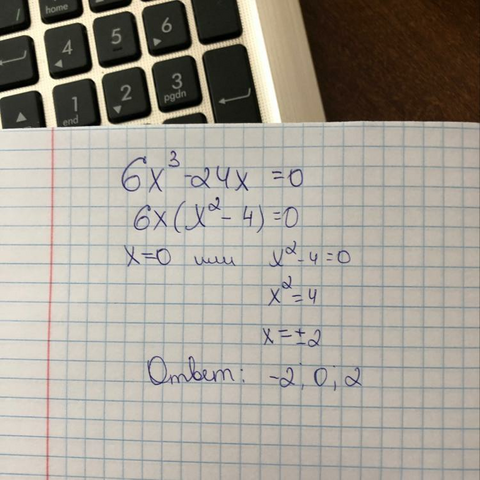 / home
4 5 6
1 end 2 3 pgdn
6x³-24x=0
6x(x²-4)=0
x=0 или x²-4=0
x²=4
x=±2
Ответ: -2; 0; 2